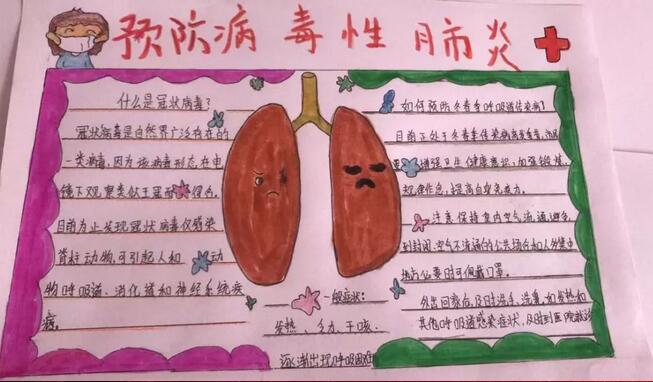 预防病毒性肺炎
什么是冠状病毒?
冠状病毒是自然界广泛存在的
一类病毒,因为该病毒形态在电
镜下观察类似王冠而得名。
目前为止发现冠状病毒仅感染
脊柱动物,可引起人和动
物呼吸道、消化道和神经系统疾
病。
一般症状:
发热、乏力、干咳、
逐渐出现呼吸困难
如何预防冬春季呼吸道传染病?
目前正处于冬春季传染病
增强卫生健康意识,加强锻炼,
规律作息,提高自身免疫力。
注意保持室内空气流通,避免
到封闭、空气不流通的公共场合和人多集中
地方,必要时可佩戴口罩。
外出回家后,及时洗手、洗鼻,如发热和
其他呼吸道感染症状,及时到医院就诊